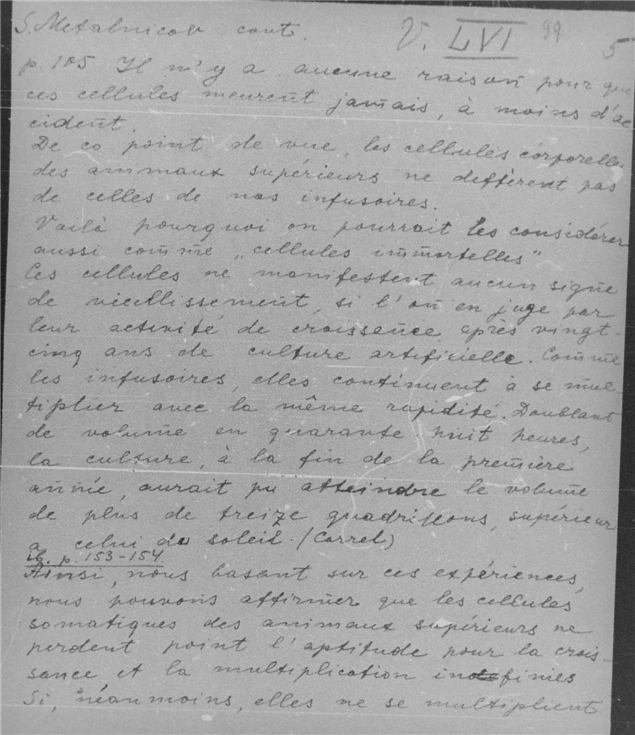 S. Metalnicov cont. V. LVI 99 5
p. 105 Il n'y a aucune raison pour que
ces cellules meurent jamais, à moins d'ac
cident.
De ce point de vue, les cellules corporelle
des animaux supérieurs ne diffèrent pas
de celles de nos infusoires.
Voilà pourquoi on pourrait les considérer
aussi comme „cellules immortelles"
Ces cellules ne manifestent aucun signe
de vieillissement, si l'on en juge par
leur activité de croissence après vingt-
cinq ans de culture artificielle. Comme
les infusoires, elles continuent à se mul
tiplier avec la même rapidité. Doublant
de volume en quarante huit heures,
la culture, à la fin de la première
année, aurait pu atteindre le volume
de plus de treize quadrillons, supérieur
a celui du soleil. (Carrel)
p. 153-154
Ainsi, nous basant sur ces expériences,
nous pouvons affirmer que les cellules
somatiques des animaux supérieurs ne
perdent point l'aptitude pour la crois-
sance et la multiplication indefinies
Si, néanmoins, elles ne se multiplient